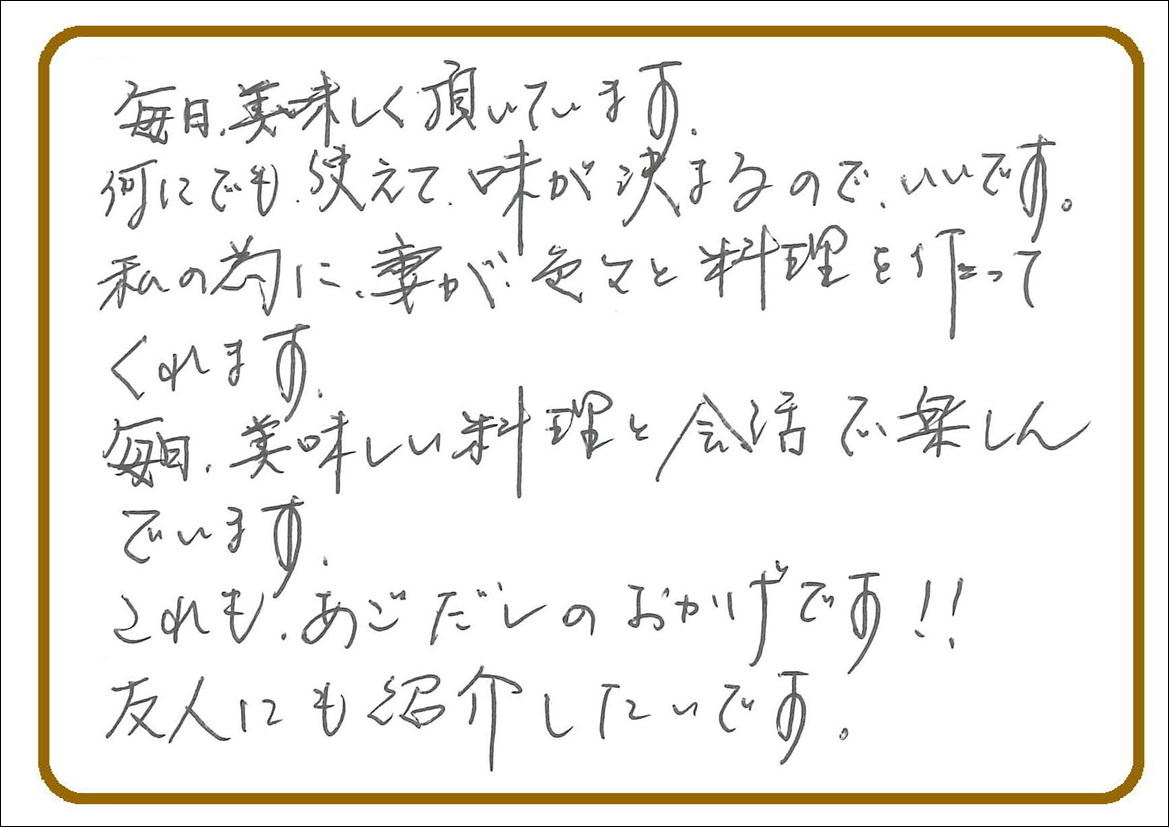 毎日、美味しく頂いています。
何にでも、使えて、味が決まるので、いいです。
私の為に、妻が、色々と料理を作って
くれます。
毎日、美味しい料理と会話で楽しん
でいます。
これも、あごだしのおかげです!!
友人にも紹介したいです。